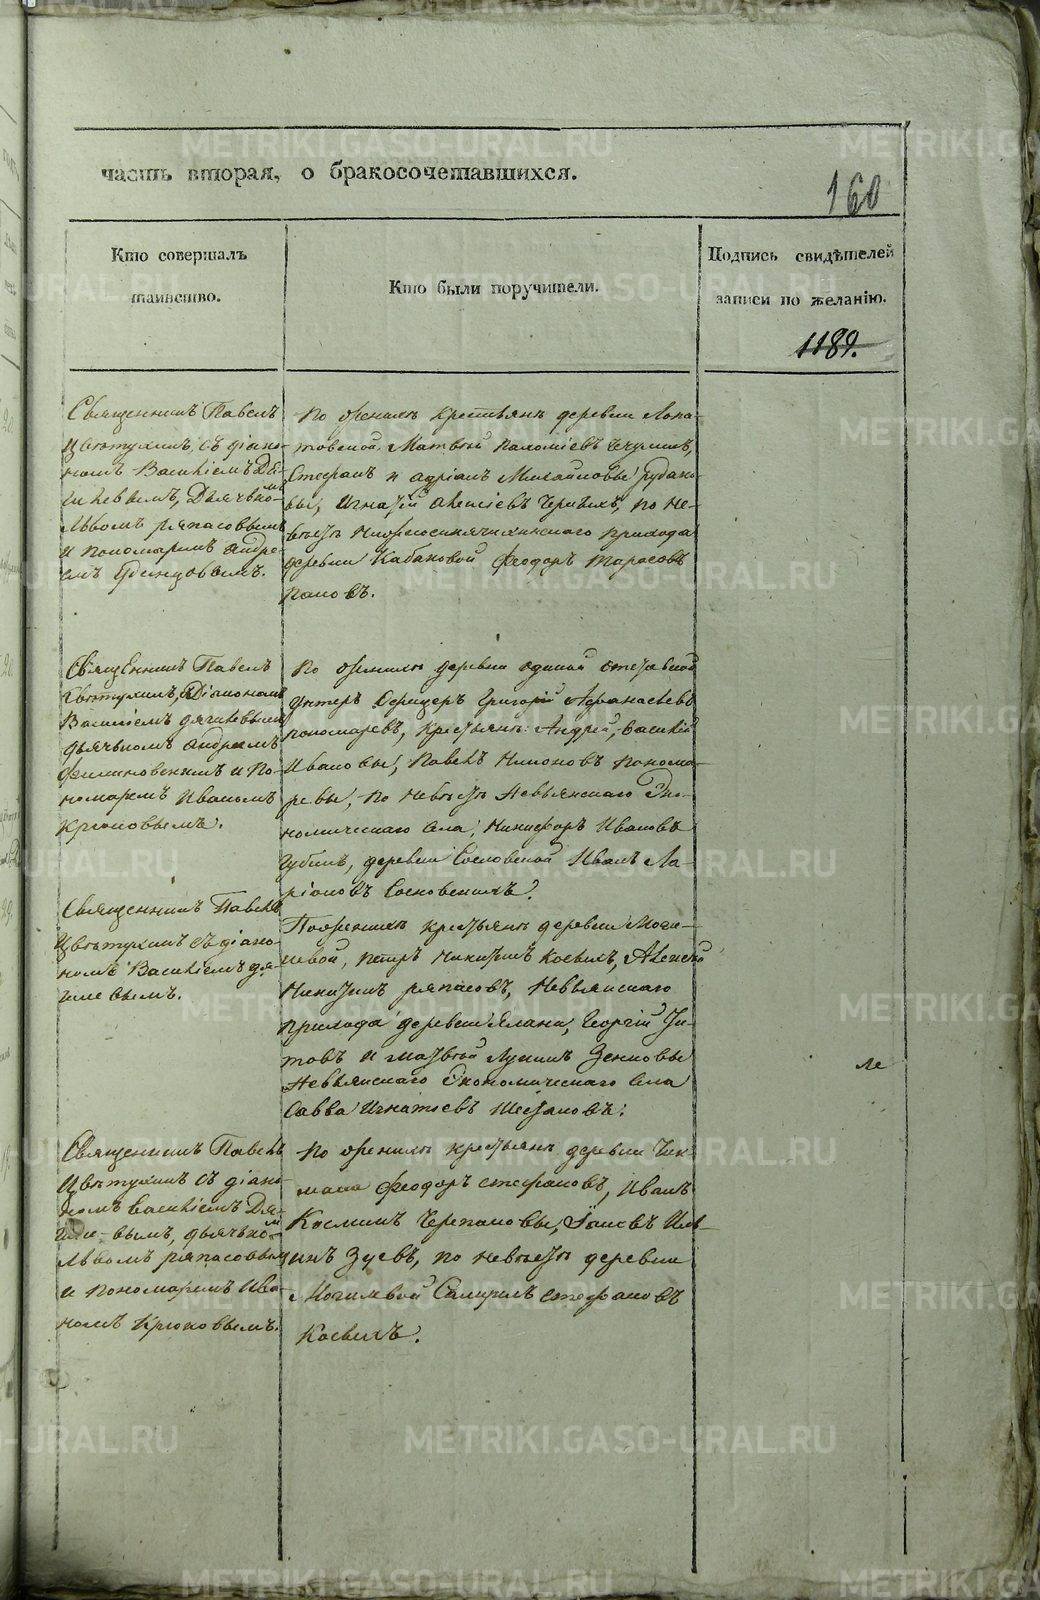 часть вторая, о бракосочетавшихся.
160
Кто совершалъ
таинство.
Кто были поручители.
Подпись свидѣтелей
записи по желанію.
1189.
Священникъ Павелъ
Цвѣтухинъ, съ діако-
номъ Василіемъ Дя-
гилевымъ, Дьячькомъ
Львомъ ряпасовымъ
и пономаремъ Андре-
емъ
По женихѣ крестьянъ деревни Лопа-
товской Матвѣй
Стефанъ и адріанъ Михайловы Рудако-
вы, Игнатій Алексіевъ Черныхъ, по не-
вѣстѣ Нижнесинячихинскаго прихода
деревни Кабаковой Феодоръ Тарасовъ
Поповъ.
Священникъ Павелъ
Цвѣтухинъ, съ Діакономъ
Василіемъ дягилевымъ
дьячькомъ андреемъ
и по-
номаремъ Иваномъ
Крюковымъ.
По женихѣ деревни
унтеръ Офицеръ Григорій Афанасьевъ
пономаревъ, крестьянъ: Андрей, Василій
Ивановы, Павелъ Понома-
ревы, по невѣстѣ Невьянскаго Эко-
номическаго села, Никифоръ Ивановъ
Губинъ, деревни Сосновской Иванъ Ла-
ріоновъ Сосновскихъ.
Священникъ Павелъ
Цвѣтухинъ съ діако-
номъ Василіемъ дя-
гилевымъ.
По женихѣ крестьянъ деревни Моги-
левой, Петръ Никитинъ Косыхъ, Алексѣй
Никитинъ ряпасовъ, Невьянскаго
прихода деревни Елани, Георгій Ти-
товъ и матвѣй Лукинъ Зенковы
Невьянскаго Экономическаго села
Савва Игнатіевъ Шестаковъ.
ле
Священникъ Павелъ
Цвѣтухинъ съ діако-
номъ Василіемъ Дя-
гиле-вымъ, дьячькомъ
Львомъ ряпасовымъ
и пономаремъ Ива-
номъ Крюковымъ.
По женихѣ крестьянъ деревни Чек-
мана Феодоръ стефановъ, Иванъ
Косминъ Черепановы, Іаковъ Иль-
инъ Зуевъ, по невѣстѣ деревни
Могилевой стефановъ
Косыхъ.
METRIKI.GASO-URAL.RU